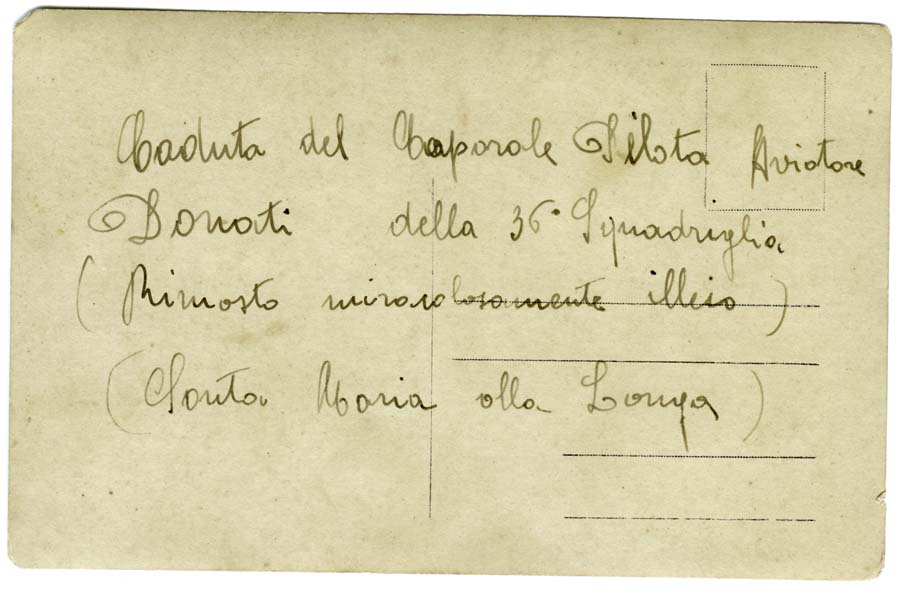 Caduta del Caporale Pilota Aviatore
Donati della 36ª Squadriglia
(Rimasto miracolosamente illeso)
(Santa Maria alla Longa)